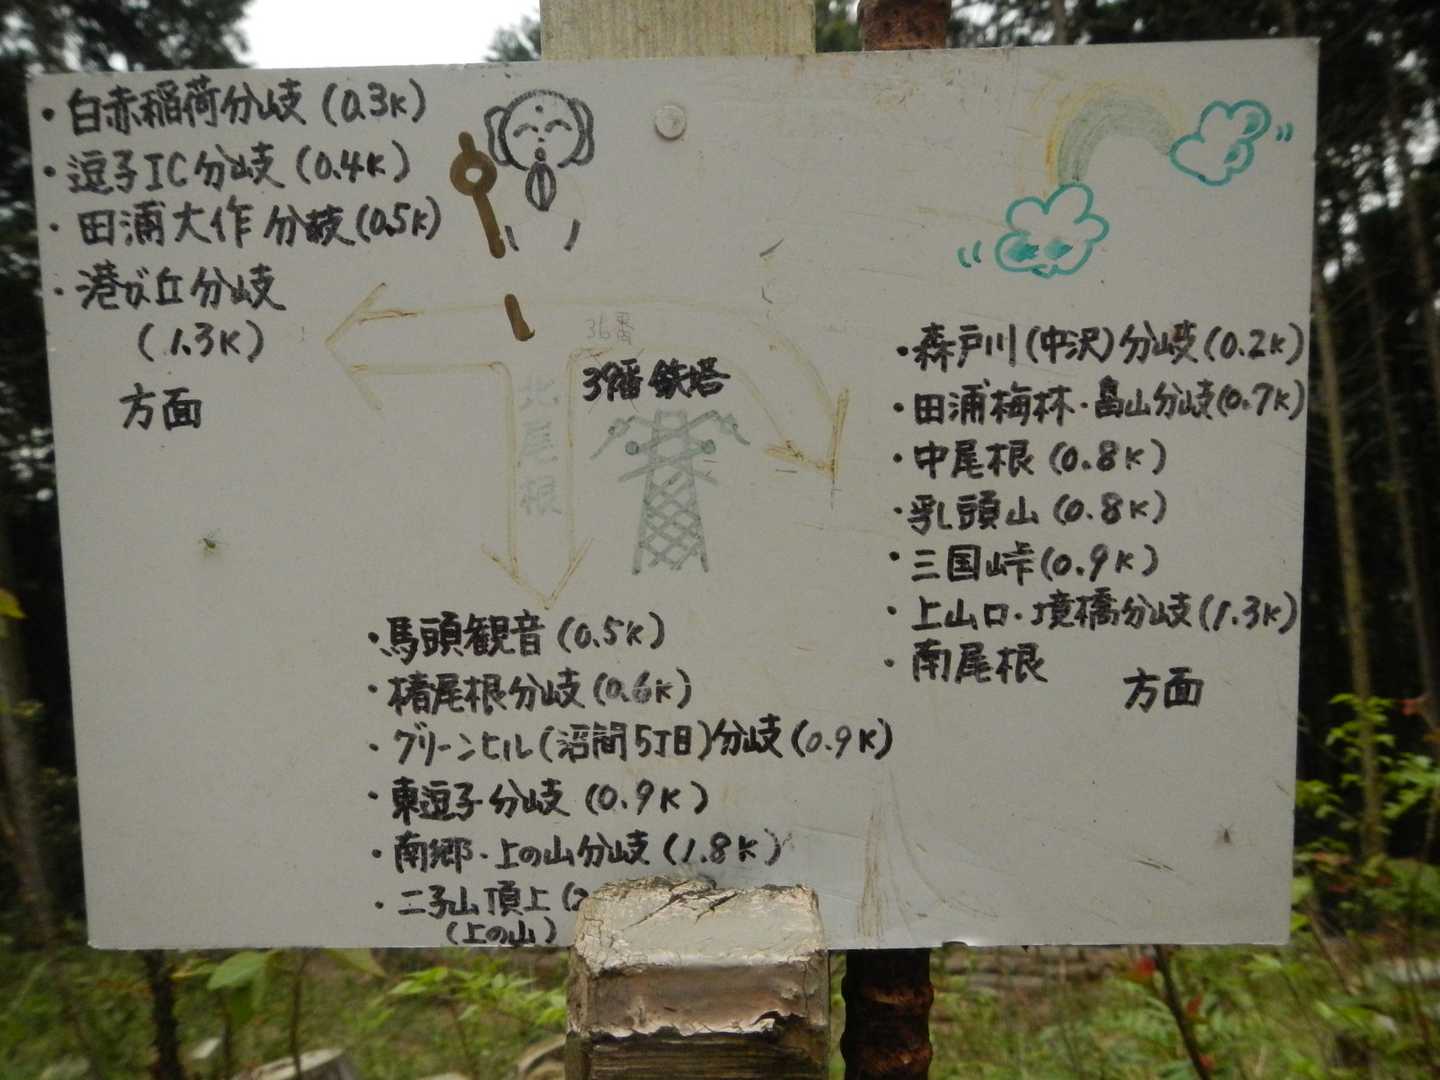 ・白赤稲荷分岐(0.3K)
・逗子IC分岐(0.4K)
・田浦大作分岐(0.5K)
・港が丘分岐
(1.3K)
方面
36番
39番鉄塔
北尾根
・森戸川(中沢)分岐(0.2K)
・田浦梅林・畠山分岐(0.7K)
・中尾根(0.8K)
・乳頭山(0.8K)
・三国峠(0.9K)
・上山口・境橋分岐(1.3K)
・南尾根
方面
・馬頭観音(0.5K)
・楮尾根分岐(0.6K)
・グリーンヒル(沼間5丁目)分岐(0.9K)
・東逗子分岐(0.9K)
・南郷・上の山分岐(1.8K)
・二子山頂上(2
(上の山)